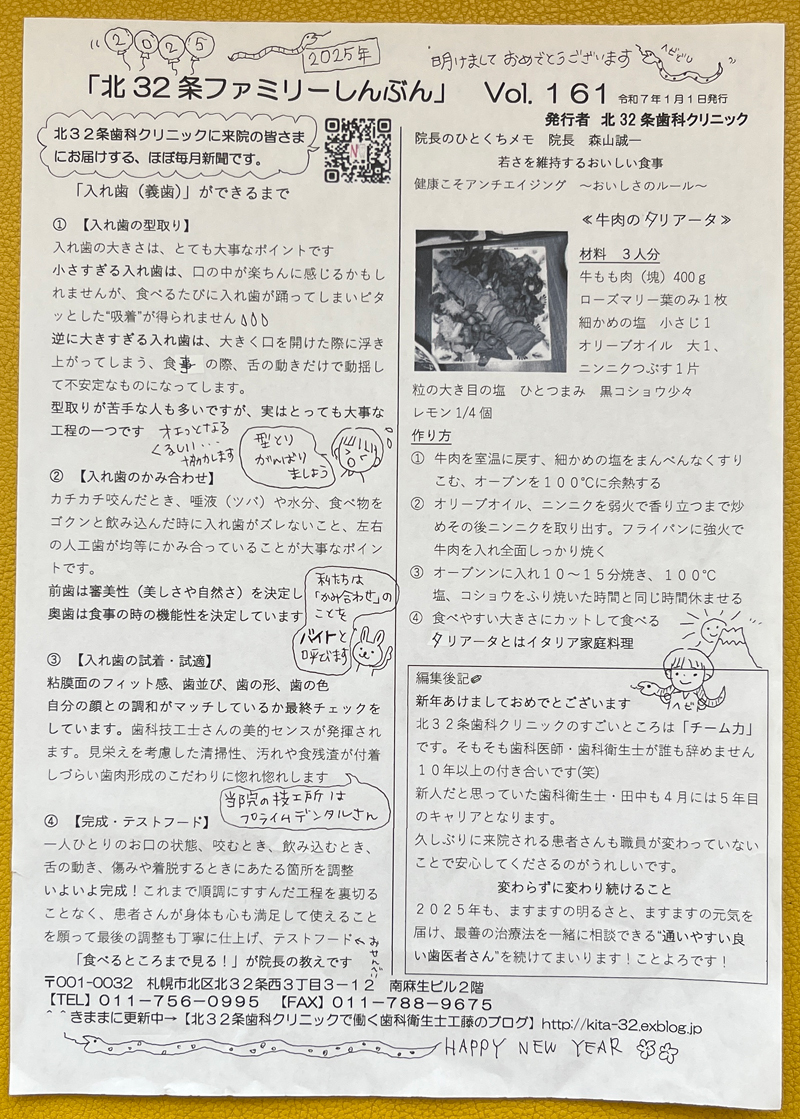 2025
2025年
明けまして おめでとうございます
ヘビどし
「北32条ファミリーしんぶん」 Vol. 161 令和7年1月1日発行
発行者 北32条歯科クリニック
北32条歯科クリニックに来院の皆さま
にお届けする、ほぼ毎月新聞です。
「入れ歯（義歯）」ができるまで
① 【入れ歯の型取り】
入れ歯の大きさは、とても大事なポイントです
小さすぎる入れ歯は、口の中が楽ちんに感じるかもし
れませんが、食べるたびに入れ歯が踊ってしまいピタ
ッとした"吸着"が得られません
逆に大きすぎる入れ歯は、大きく口を開けた際に浮き
上がってしまう、食事の際、舌の動きだけで動揺し
て不安定なものになってします。
型取りが苦手な人も多いですが、実はとっても大事な
工程の一つです
オエっとなる
くるしい…
協力します
型とり
がんばり
ましょう
② 【入れ歯のかみ合わせ】
カチカチ咬んだとき、唾液（ツバ）や水分、食べ物を
ゴクンと飲み込んだ時に入れ歯がズレないこと、左右
の人工歯が均等にかみ合っていることが大事なポイン
トです。
前歯は審美性（美しさや自然さ）を決定し
奥歯は食事の時の機能性を決定しています
私たちは
「かみ合わせ」の
ことを
バイトと
呼びます
③ 【入れ歯の試着・試適】
粘膜面のフィット感、歯並び、歯の形、歯の色
自分の顔との調和がマッチしているか最終チェックを
しています。歯科技工士さんの美的センスが発揮され
ます。見栄えを考慮した清掃性、汚れや食残渣が付着
しづらい歯肉形成のこだわりに惚れ惚れします
当院の技工所は
プライムデンタルさん
④ 【完成・テストフード】
一人ひとりのお口の状態、咬むとき、飲み込むとき、
舌の動き、傷みや着脱するときにあたる箇所を調整
いよいよ完成！これまで順調にすすんだ工程を裏切る
ことなく、患者さんが身体も心も満足して使えること
を願って最後の調整も丁寧に仕上げ、テストフード
おせんべい
「食べるところまで見る！」が院長の教えです
院長のひとくちメモ 院長 森山誠一
若さを維持するおいしい食事
健康こそアンチエイジング ～おいしさのルール～
≪牛肉のタリアータ≫
材料 3人分
牛もも肉（塊）400ｇ
ローズマリー葉のみ1枚
細かめの塩 小さじ1
オリーブオイル 大1、
ニンニクつぶす1片
粒の大き目の塩 ひとつまみ 黒コショウ少々
レモン1/4個
作り方
① 牛肉を室温に戻す、細かめの塩をまんべんなくすり
こむ、オーブンを１００℃に余熱する
② オリーブオイル、ニンニクを弱火で香り立つまで炒
めその後ニンニクを取り出す。フライパンに強火で
牛肉を入れ全面しっかり焼く
③ オーブンンに入れ１０～１５分焼き、１００℃
塩、コショウをふり焼いた時間と同じ時間休ませる
④ 食べやすい大きさにカットして食べる
タリアータとはイタリア家庭料理
編集後記
ヘビ
新年あけましておめでとございます
北３２条歯科クリニックのすごいところは「チーム力」
です。そもそも歯科医師・歯科衛生士が誰も辞めません
１０年以上の付き合いです(笑)
新人だと思っていた歯科衛生士・田中も４月には５年目
のキャリアとなります。
久しぶりに来院される患者さんも職員が変わっていない
ことで安心してくださるのがうれしいです。
変わらずに変わり続けること
２０２５年も、ますますの明るさと、ますますの元気を
届け、最善の治療法を一緒に相談できる"通いやすい良
い歯医者さん"を続けてまいります！ことよろです！
〒001-0032 札幌市北区北３２条西３丁目３－１２ 南麻生ビル２階
【TEL】０１１－７５６－０９９５ 【FAX】０１１－７８８－９６７５
^ ^きままに更新中→【北３２条歯科クリニックで働く歯科衛生士工藤のブログ】http://kita-32.exblog.jp
HAPPY NEW YEAR